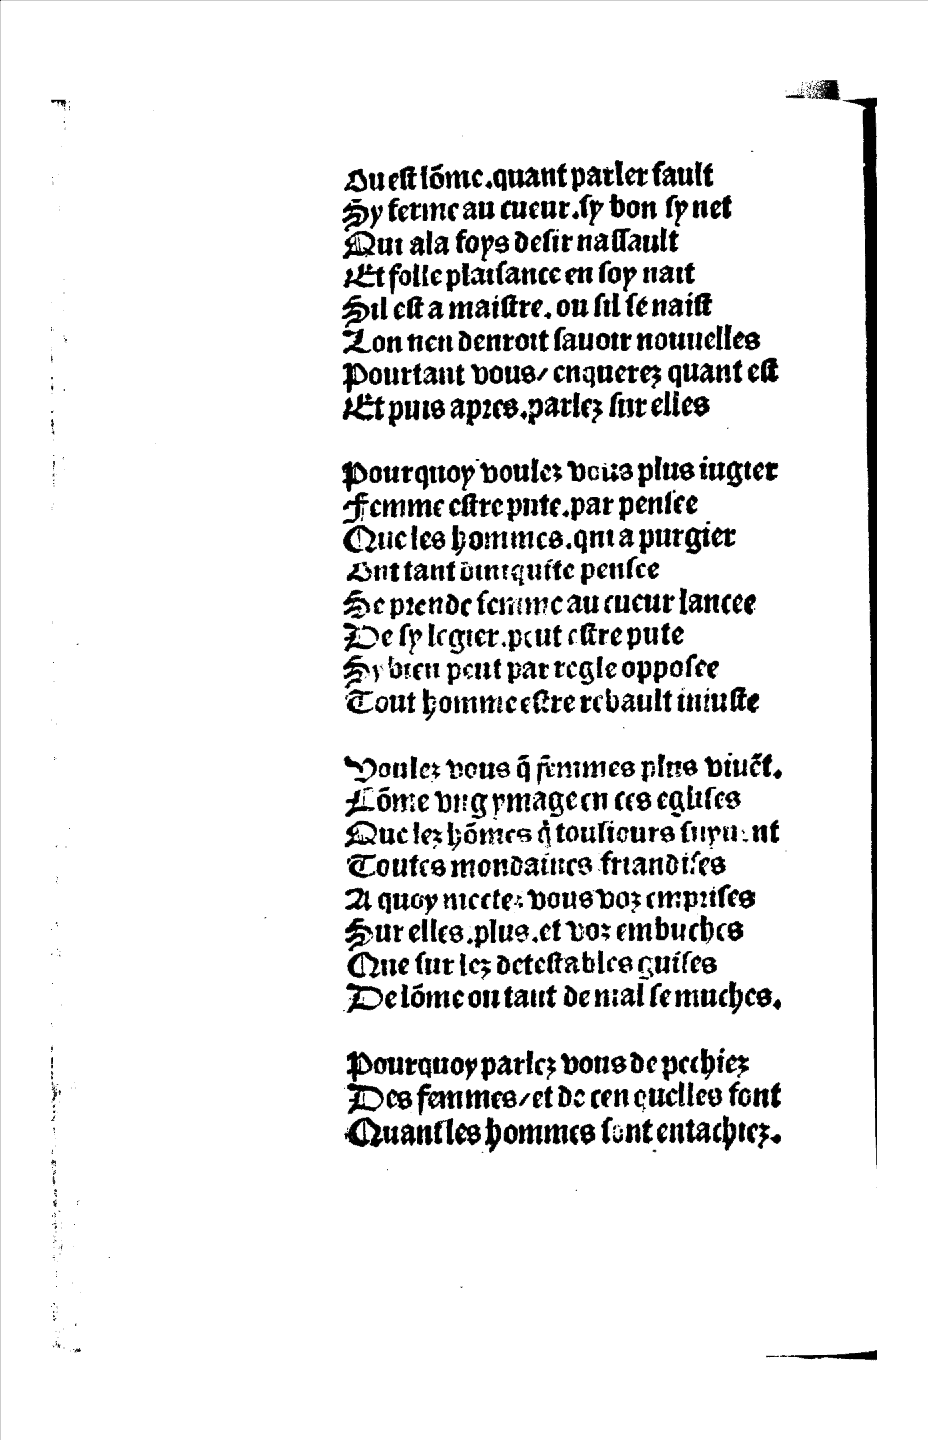 Ou est lõme.quant parler fault
Sy ferme au cueur.sy bon sy net
Qui ala foys desir nassault
Et folle plaisance en soy nait
Sil est a maistre.ou sil se naist
Lon nen denroit sauoir nouuelles
Pourtant vous/ enquerez quant est
Et puis apres.parlez sur elles

Pourquoy voulez vous plus iugier
Femme estre pute.par pensee
Que les hommes.qui a purgier
Ont tant diniquite pensee
Se prende femme au cueur lancee
De sy legier.peut estre pute
Sy bien peut par regle opposee
Tout homme estre rebault iniuste

Voulez vous q̃ fẽmmes plus viuẽt.
Lõme vng ymage en ces eglises
Que lez hõmes q̃ tousiours suyuent
Toutes mondaines friandises
A quoy mectez vous voz emprises
Sur elles.plus.et voz embuches
Que sur lez detestables guises
De lõme ou tant de mal se muches.

Pourquoy parlez vous de pechiez
Des femmes/et de cen quelles font
Quant les hommes sont entachiez.